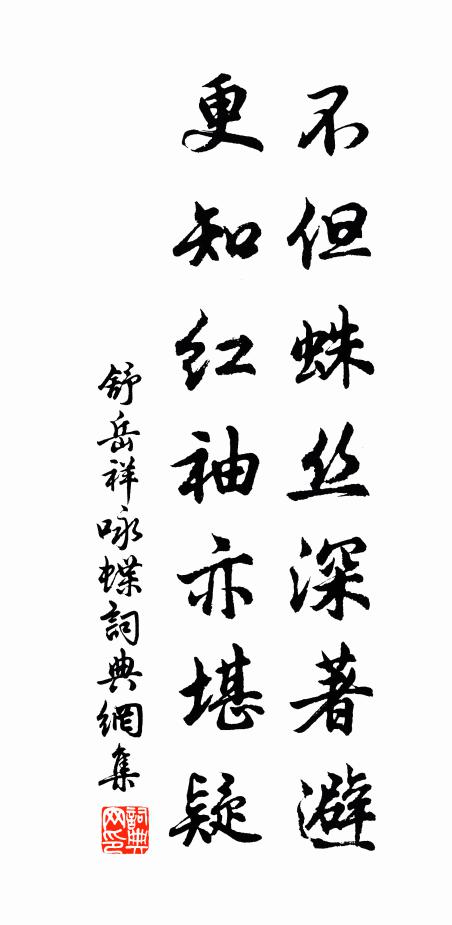 不但蛛丝深著避
更知红袖亦堪疑
舒岳祥咏蝶詞典網集
詞典
网印